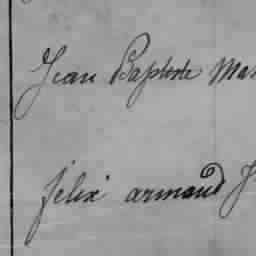 Jean Baptiste
felix armand